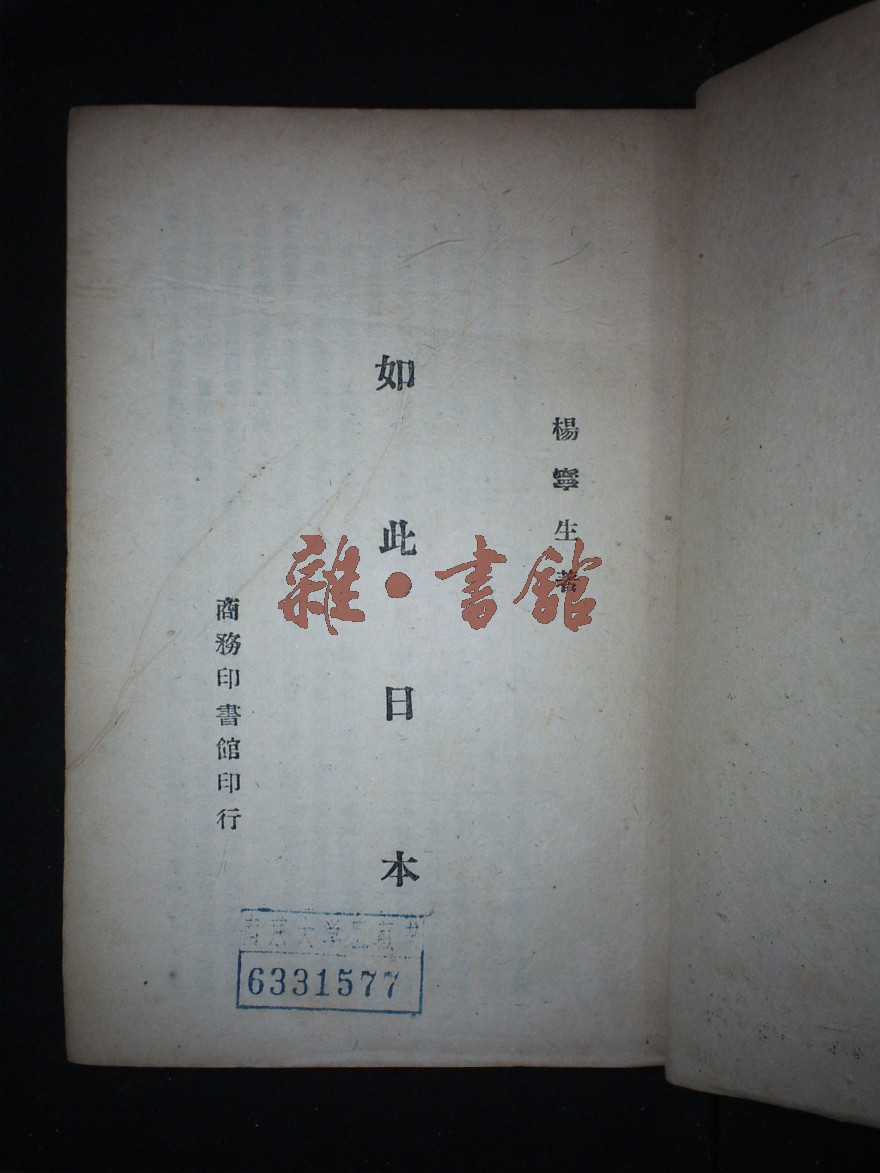 楊寧生著
如此日本
商務印書館印行
雜·書館
南京大学
6331577